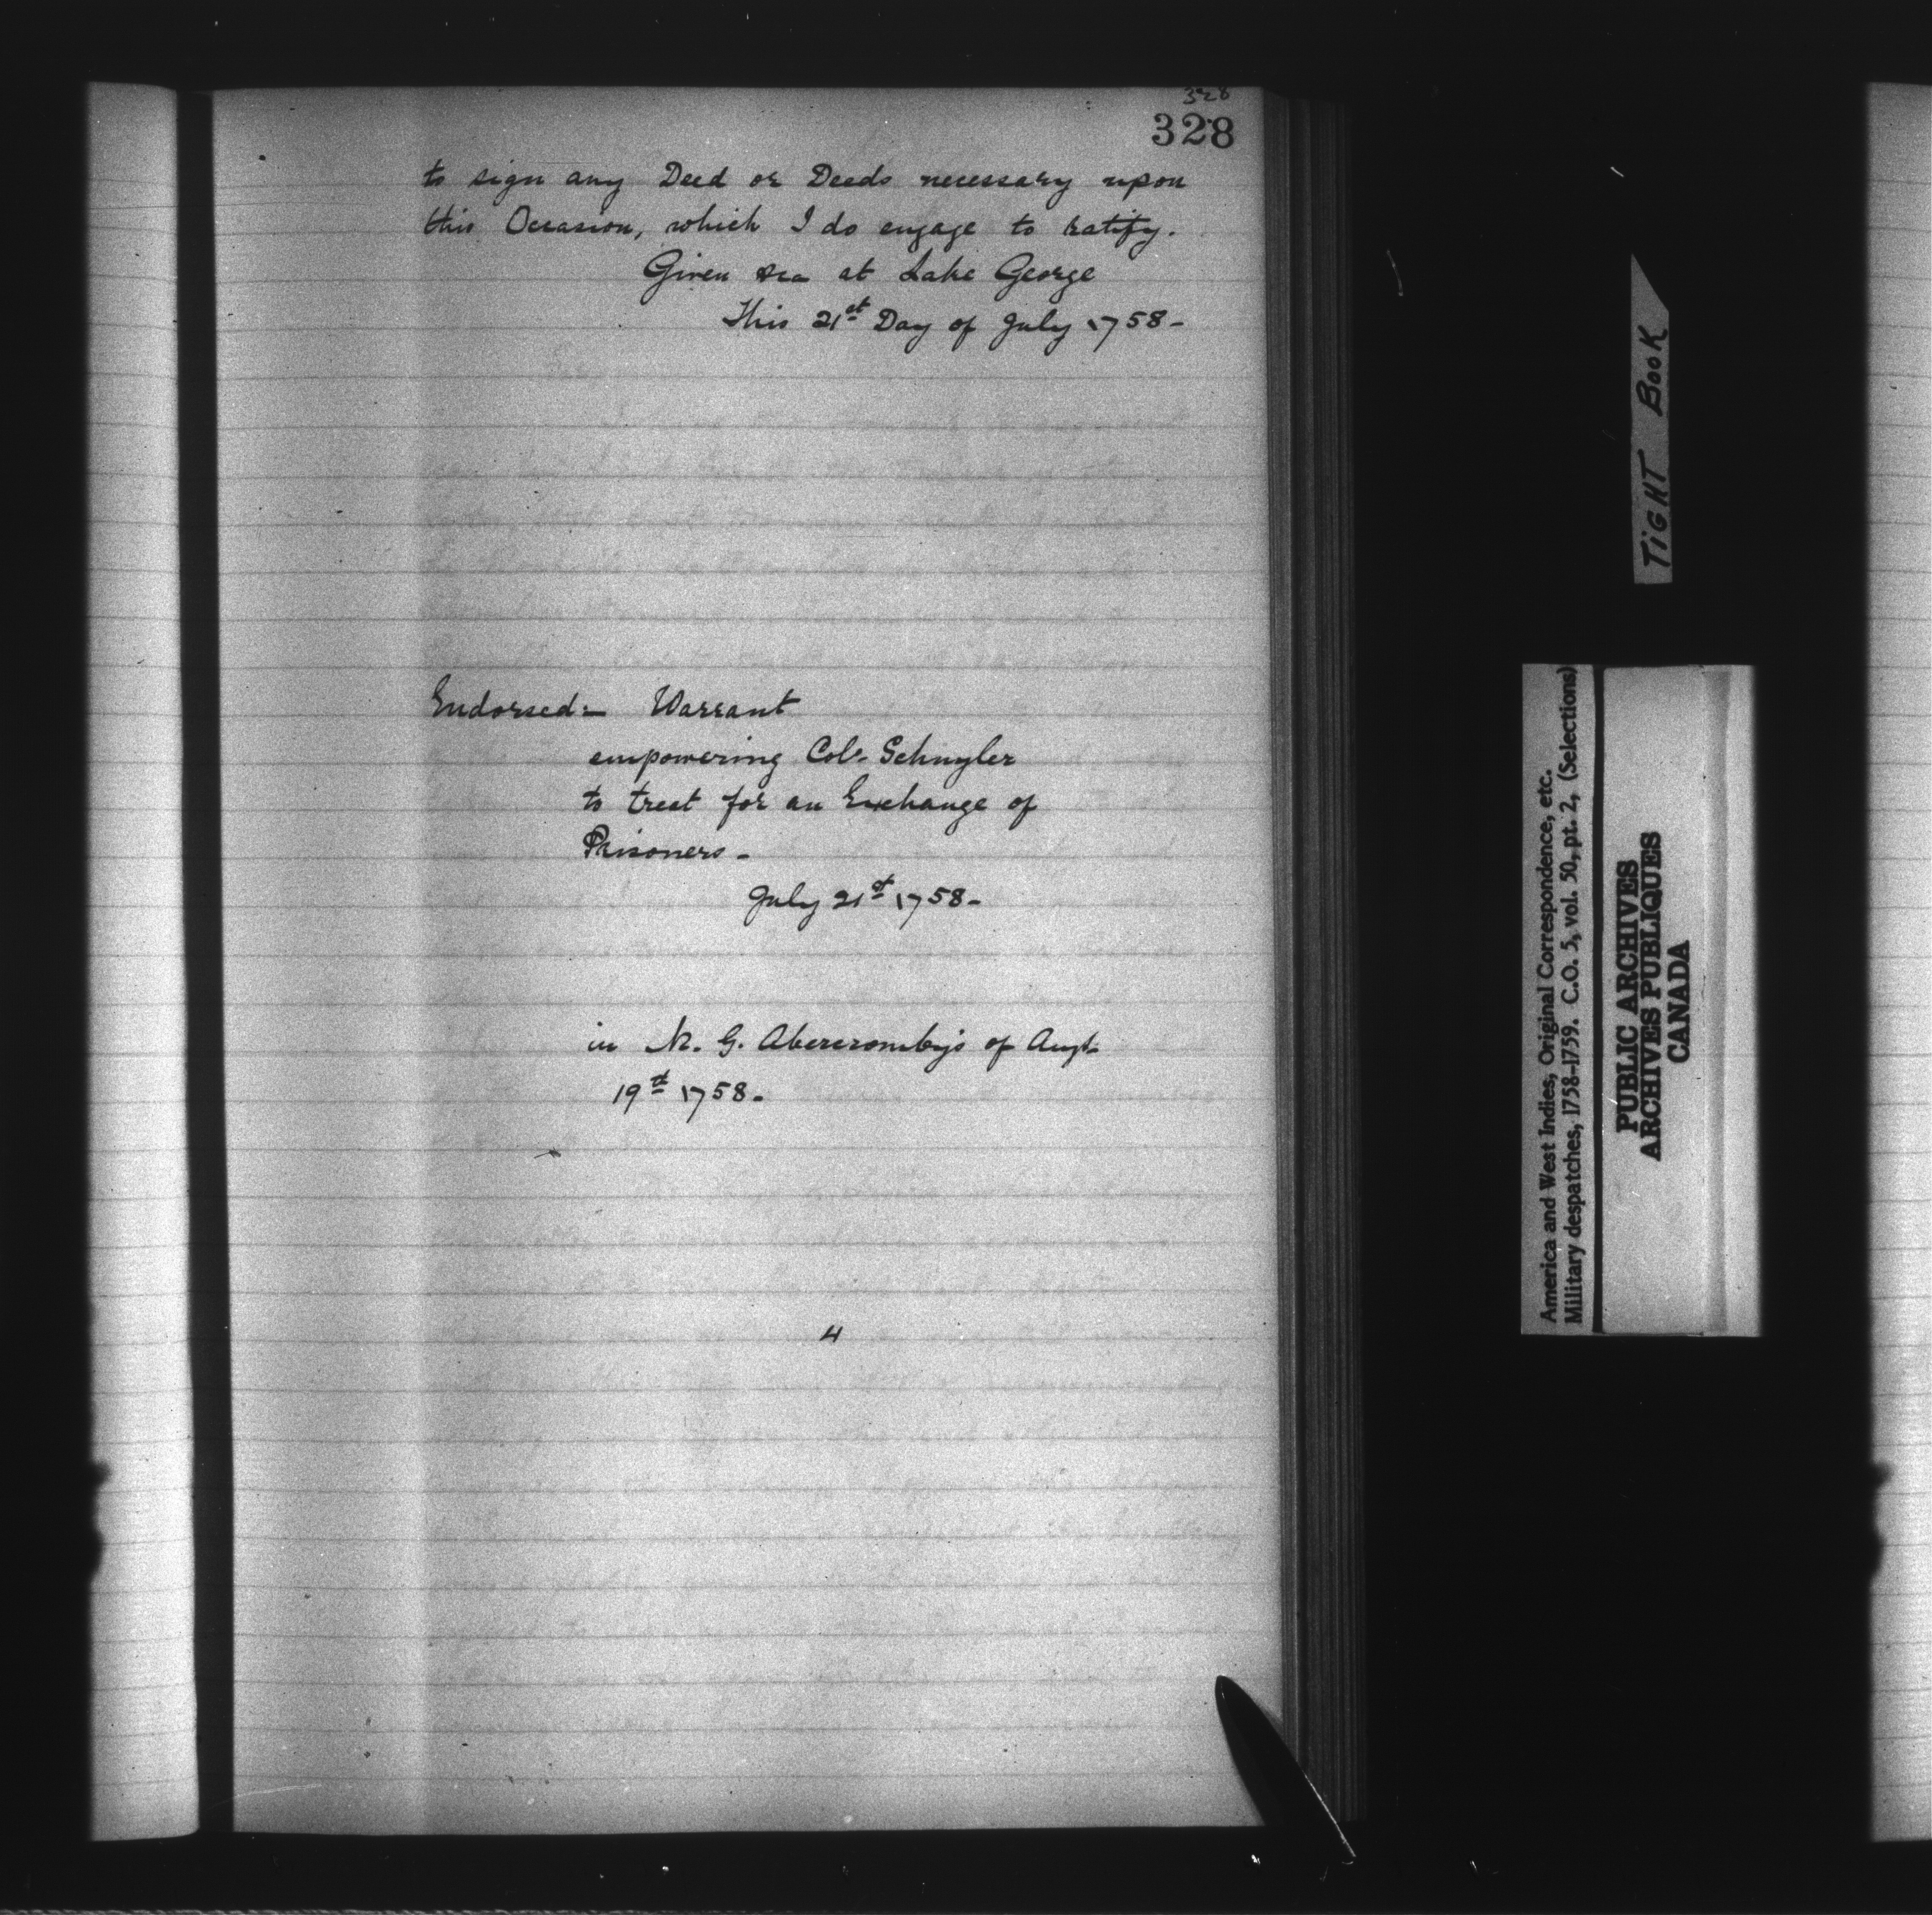 328
328
to sign any Deed or Deeds necessary upon
this Occasion, which I do engage to ratify.
Given at Lake George
This 21st Day of July 1758-
Endorsed:- Warrant
empowering Col. Schuyler
to treat for an Exchange of
Prisoners-
July 21st 1758-
in M. G. Abercromby's of Augt.
19th 1758-
4
TIGHT BOOK
America and West Indies, Original Correspondence, etc.
Military despatches, 1758-1759. C.O. 5, vol. 50, pt. 2, (Selections)
PUBLIC ARCHIVES
ARCHIVES PUBLIQUES
CANADA